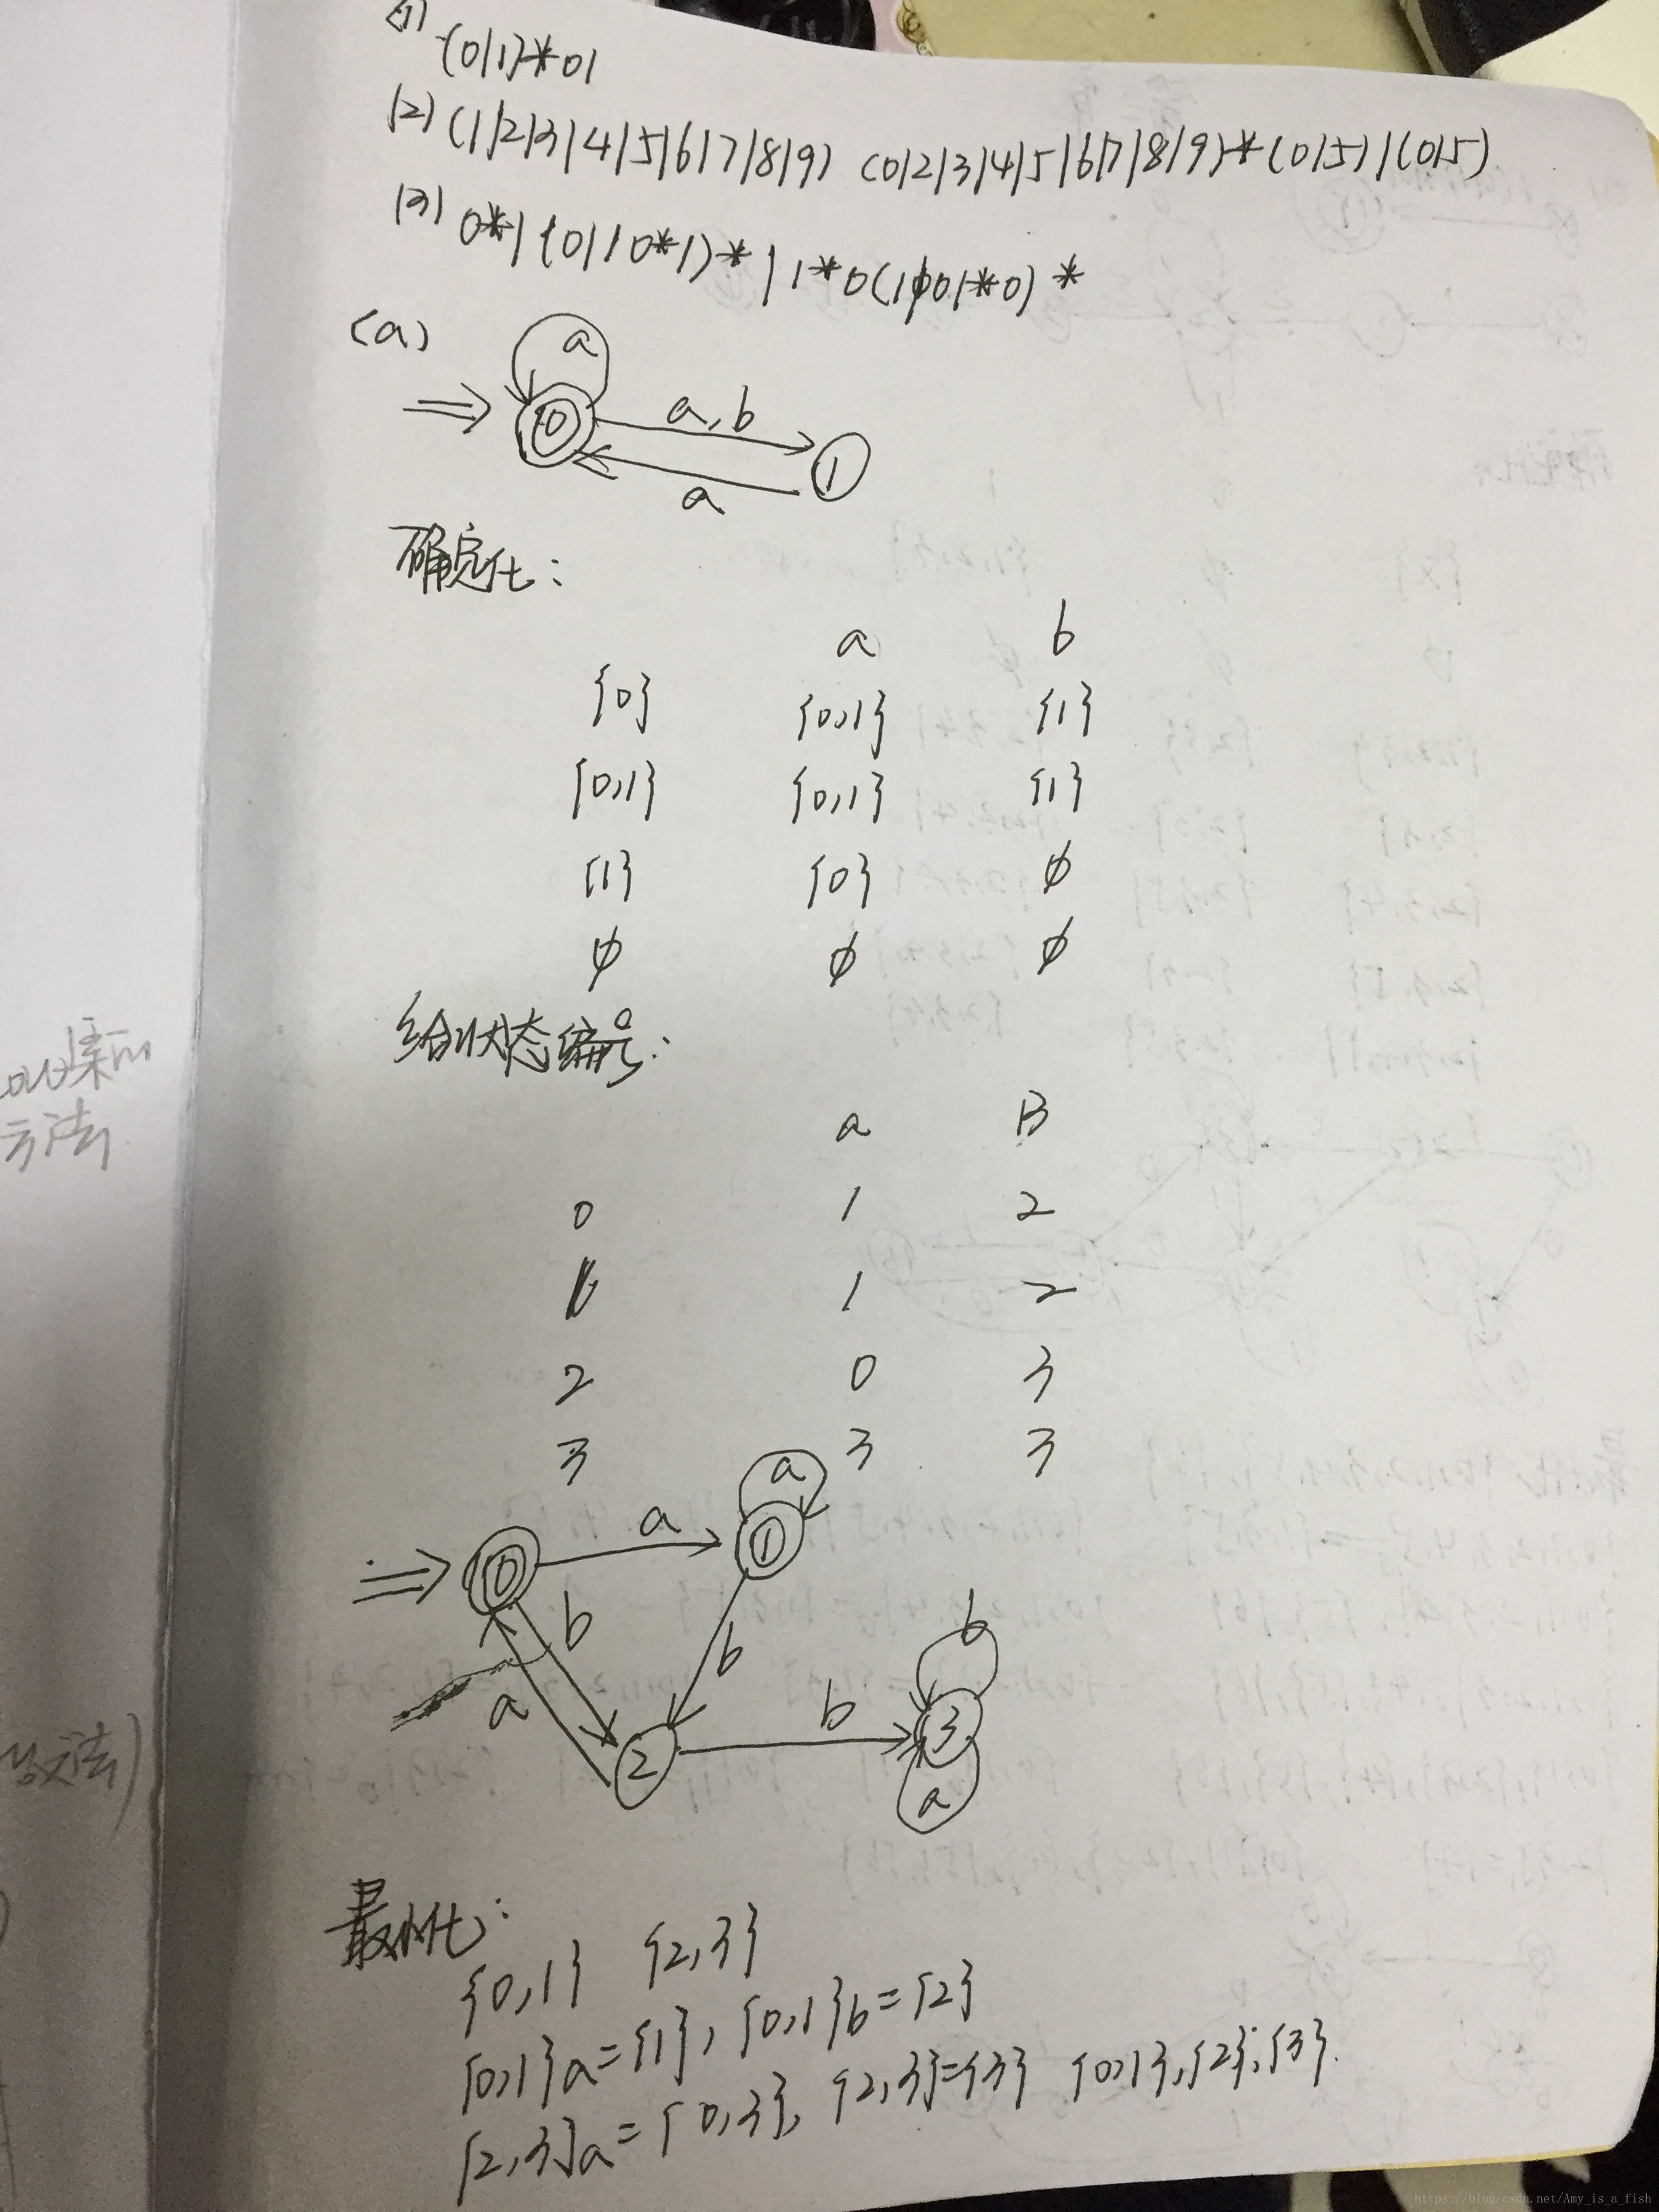 (1) (0|1)*01
(2) (1|2|3|4|5|6|7|8|9) (0|2|3|4|5|6|7|8|9)*(0|5)|(0|5)
(3) 0*1(0|10*1)*|1*0(1|01*0)*
(a)
a
0
a,b
1
a
确定化:
a b
{0} {0,1} {1}
{0,1} {0,1} {1}
{1} {0} φ
φ φ φ
给状态编号:
a B
0 1 2
1 1 2
2 0 3
3 3 3
a
0 a 1
b
b b
a
2 b 3
a
最小化:
{0,1} {2,3}
{0,1}a={1}, {0,1}b={2}
{2,3}a={0,3}, {2,3}={3} {0,1},{2},{3}
方法
方法)
https://blog.csdn.net/Amy_is_a_fish